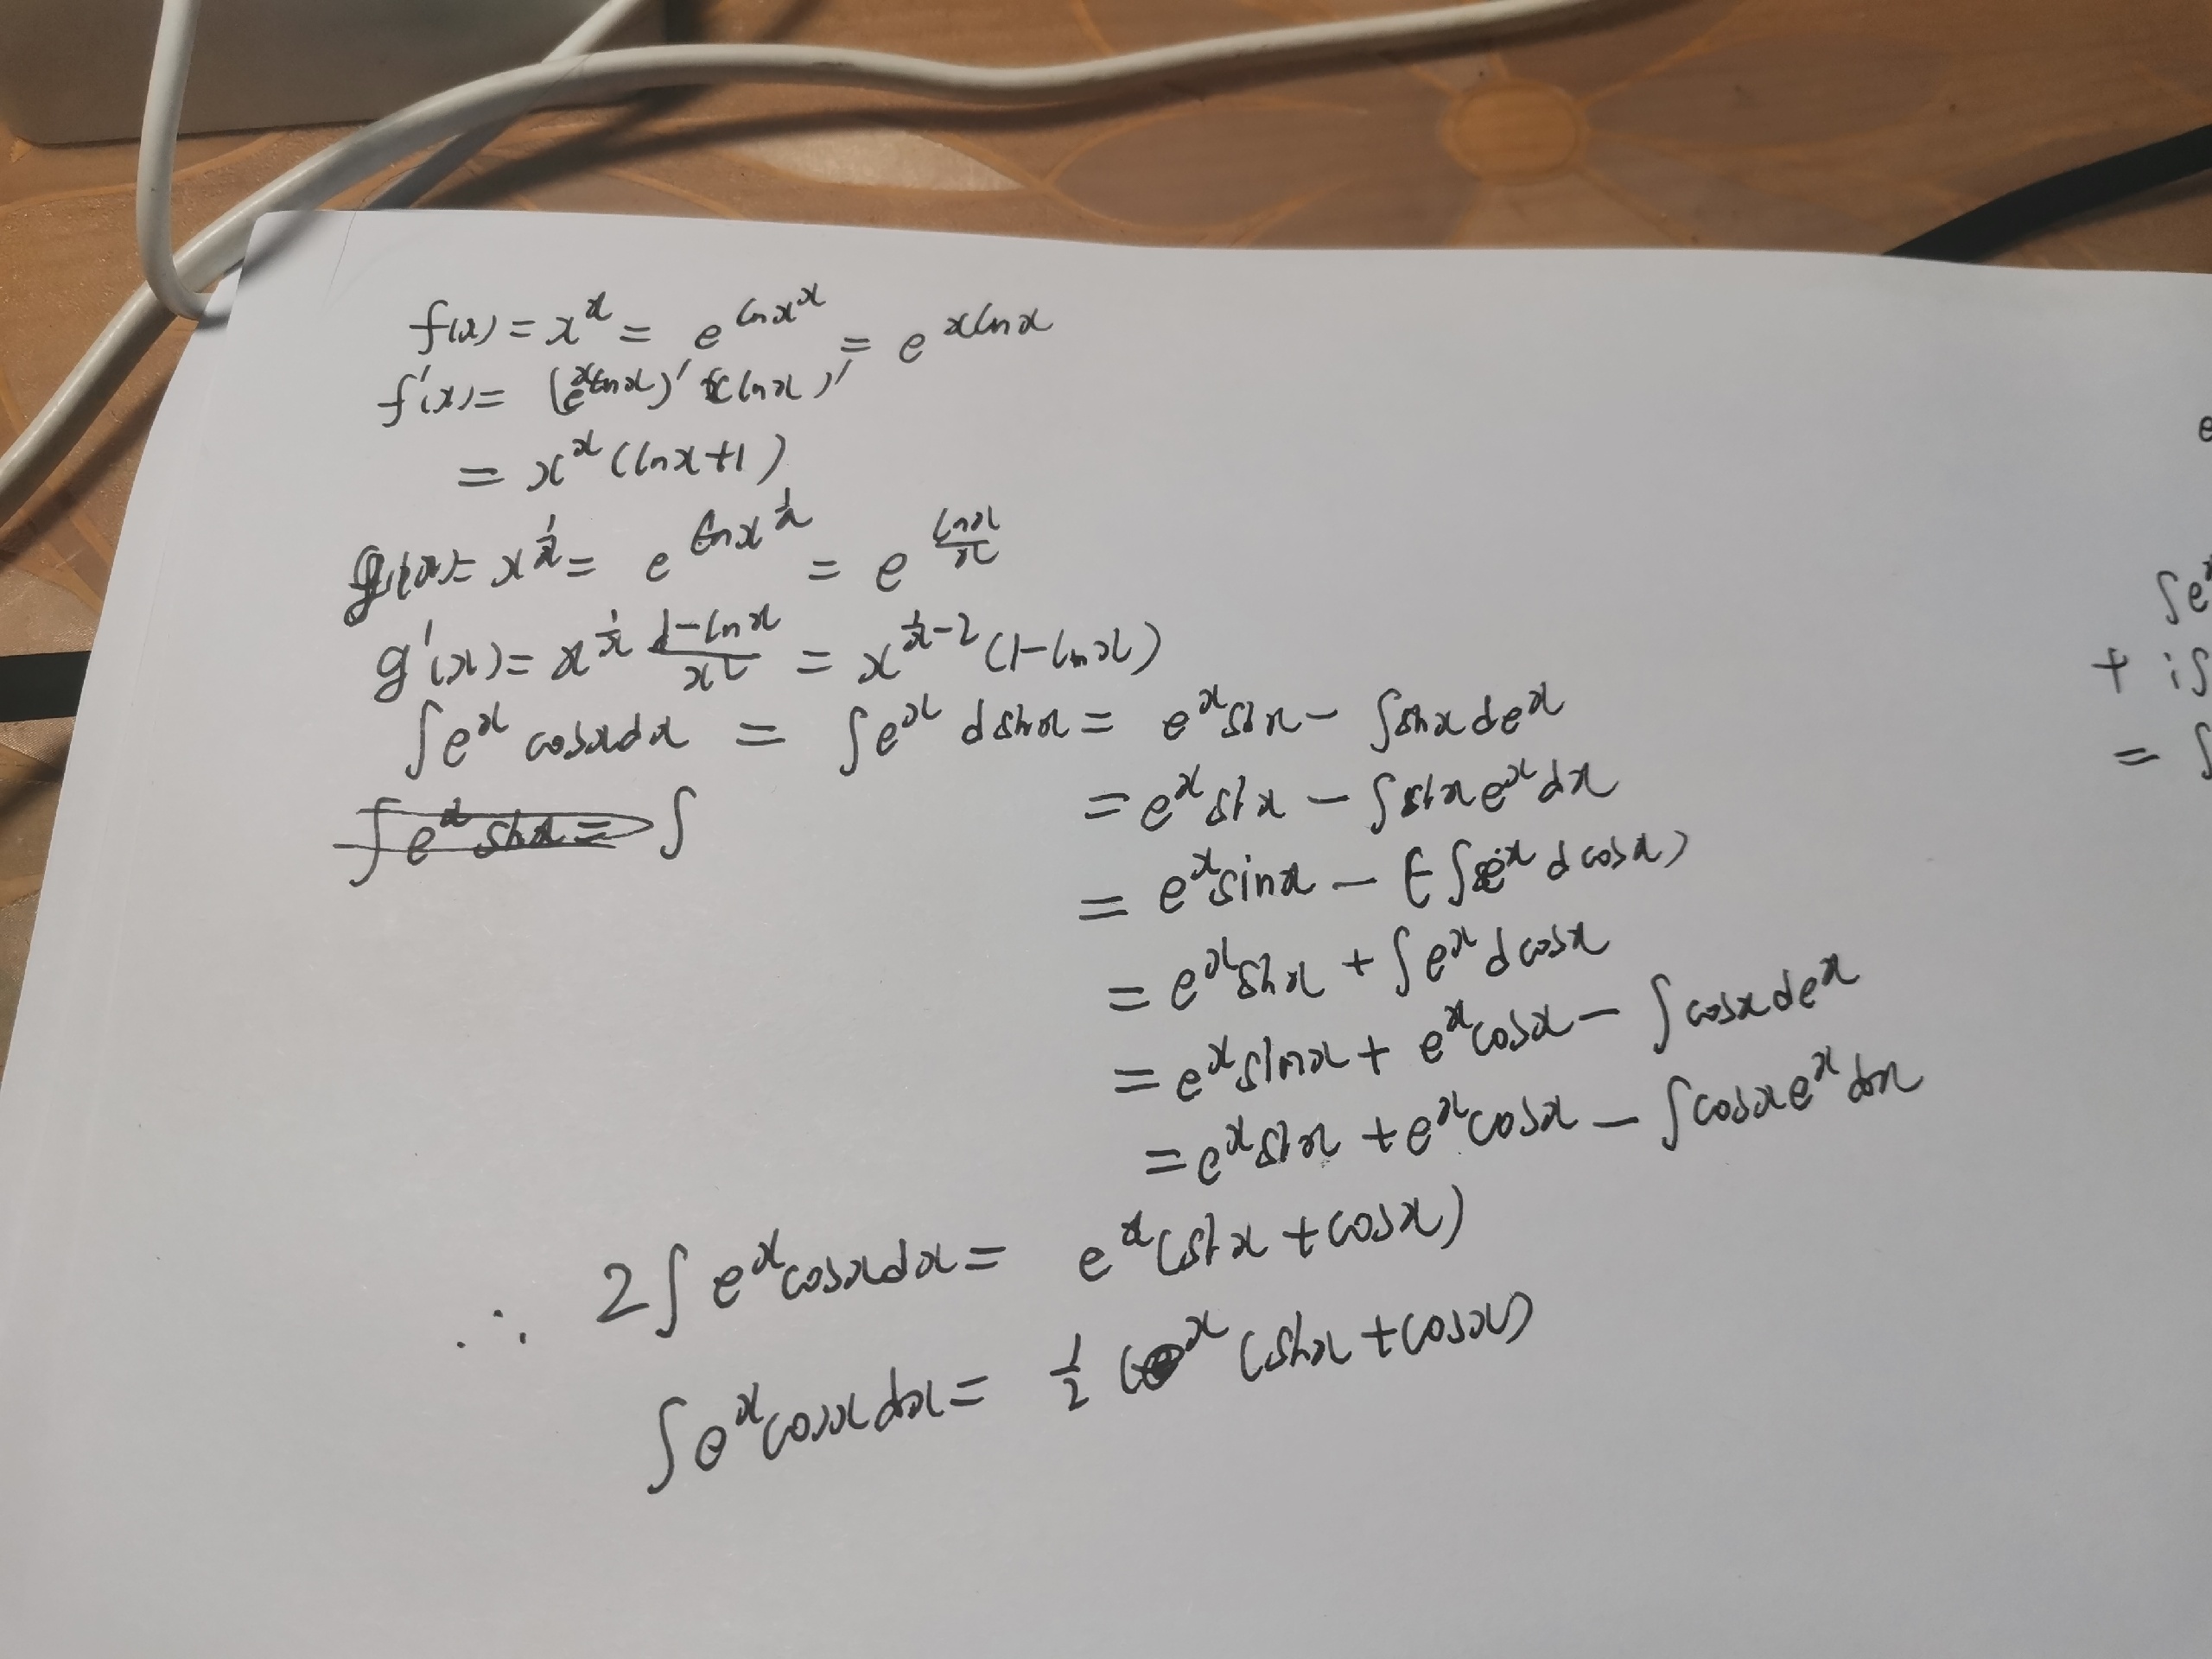 f(x) = x^x = e^{lnx^x} = e^{xlnx}
f'(x) = (e^{xlnx})' (xlnx)'
= x^x (lnx+1)
g(x) = x^{1/x} = e^{lnx^{1/x}} = e^{lnx/x}
g'(x) = x^{1/x} (1-lnx)/x² = x^{1/x-2} (1-lnx)
∫e^x cosxdx = ∫e^x dsinx = e^x sinx - ∫sinxde^x
∫e^x sinx = ∫
= e^x sinx - ∫sinxe^x dx
= e^x sinx - (-∫e^x dcosx)
= e^x sinx + ∫e^x dcosx
= e^x sinx + e^x cosx - ∫cosxde^x
= e^x sinx + e^x cosx - ∫cosxe^x dx
∴ 2∫e^x cosxdx = e^x (sinx + cosx)
∫e^x cosxdx = 1/2 (e^x (sinx + cosx)
e
∫e^x
+ i∫
= ∫